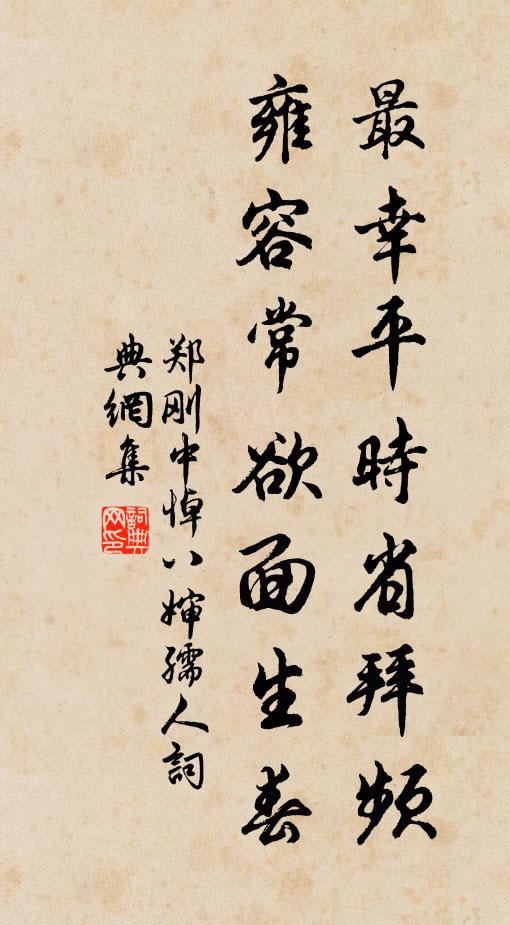 最幸平時省拜頻
雍容常欲面生春
郑刚中悼八婶孺人詞
典網集
詞典網印